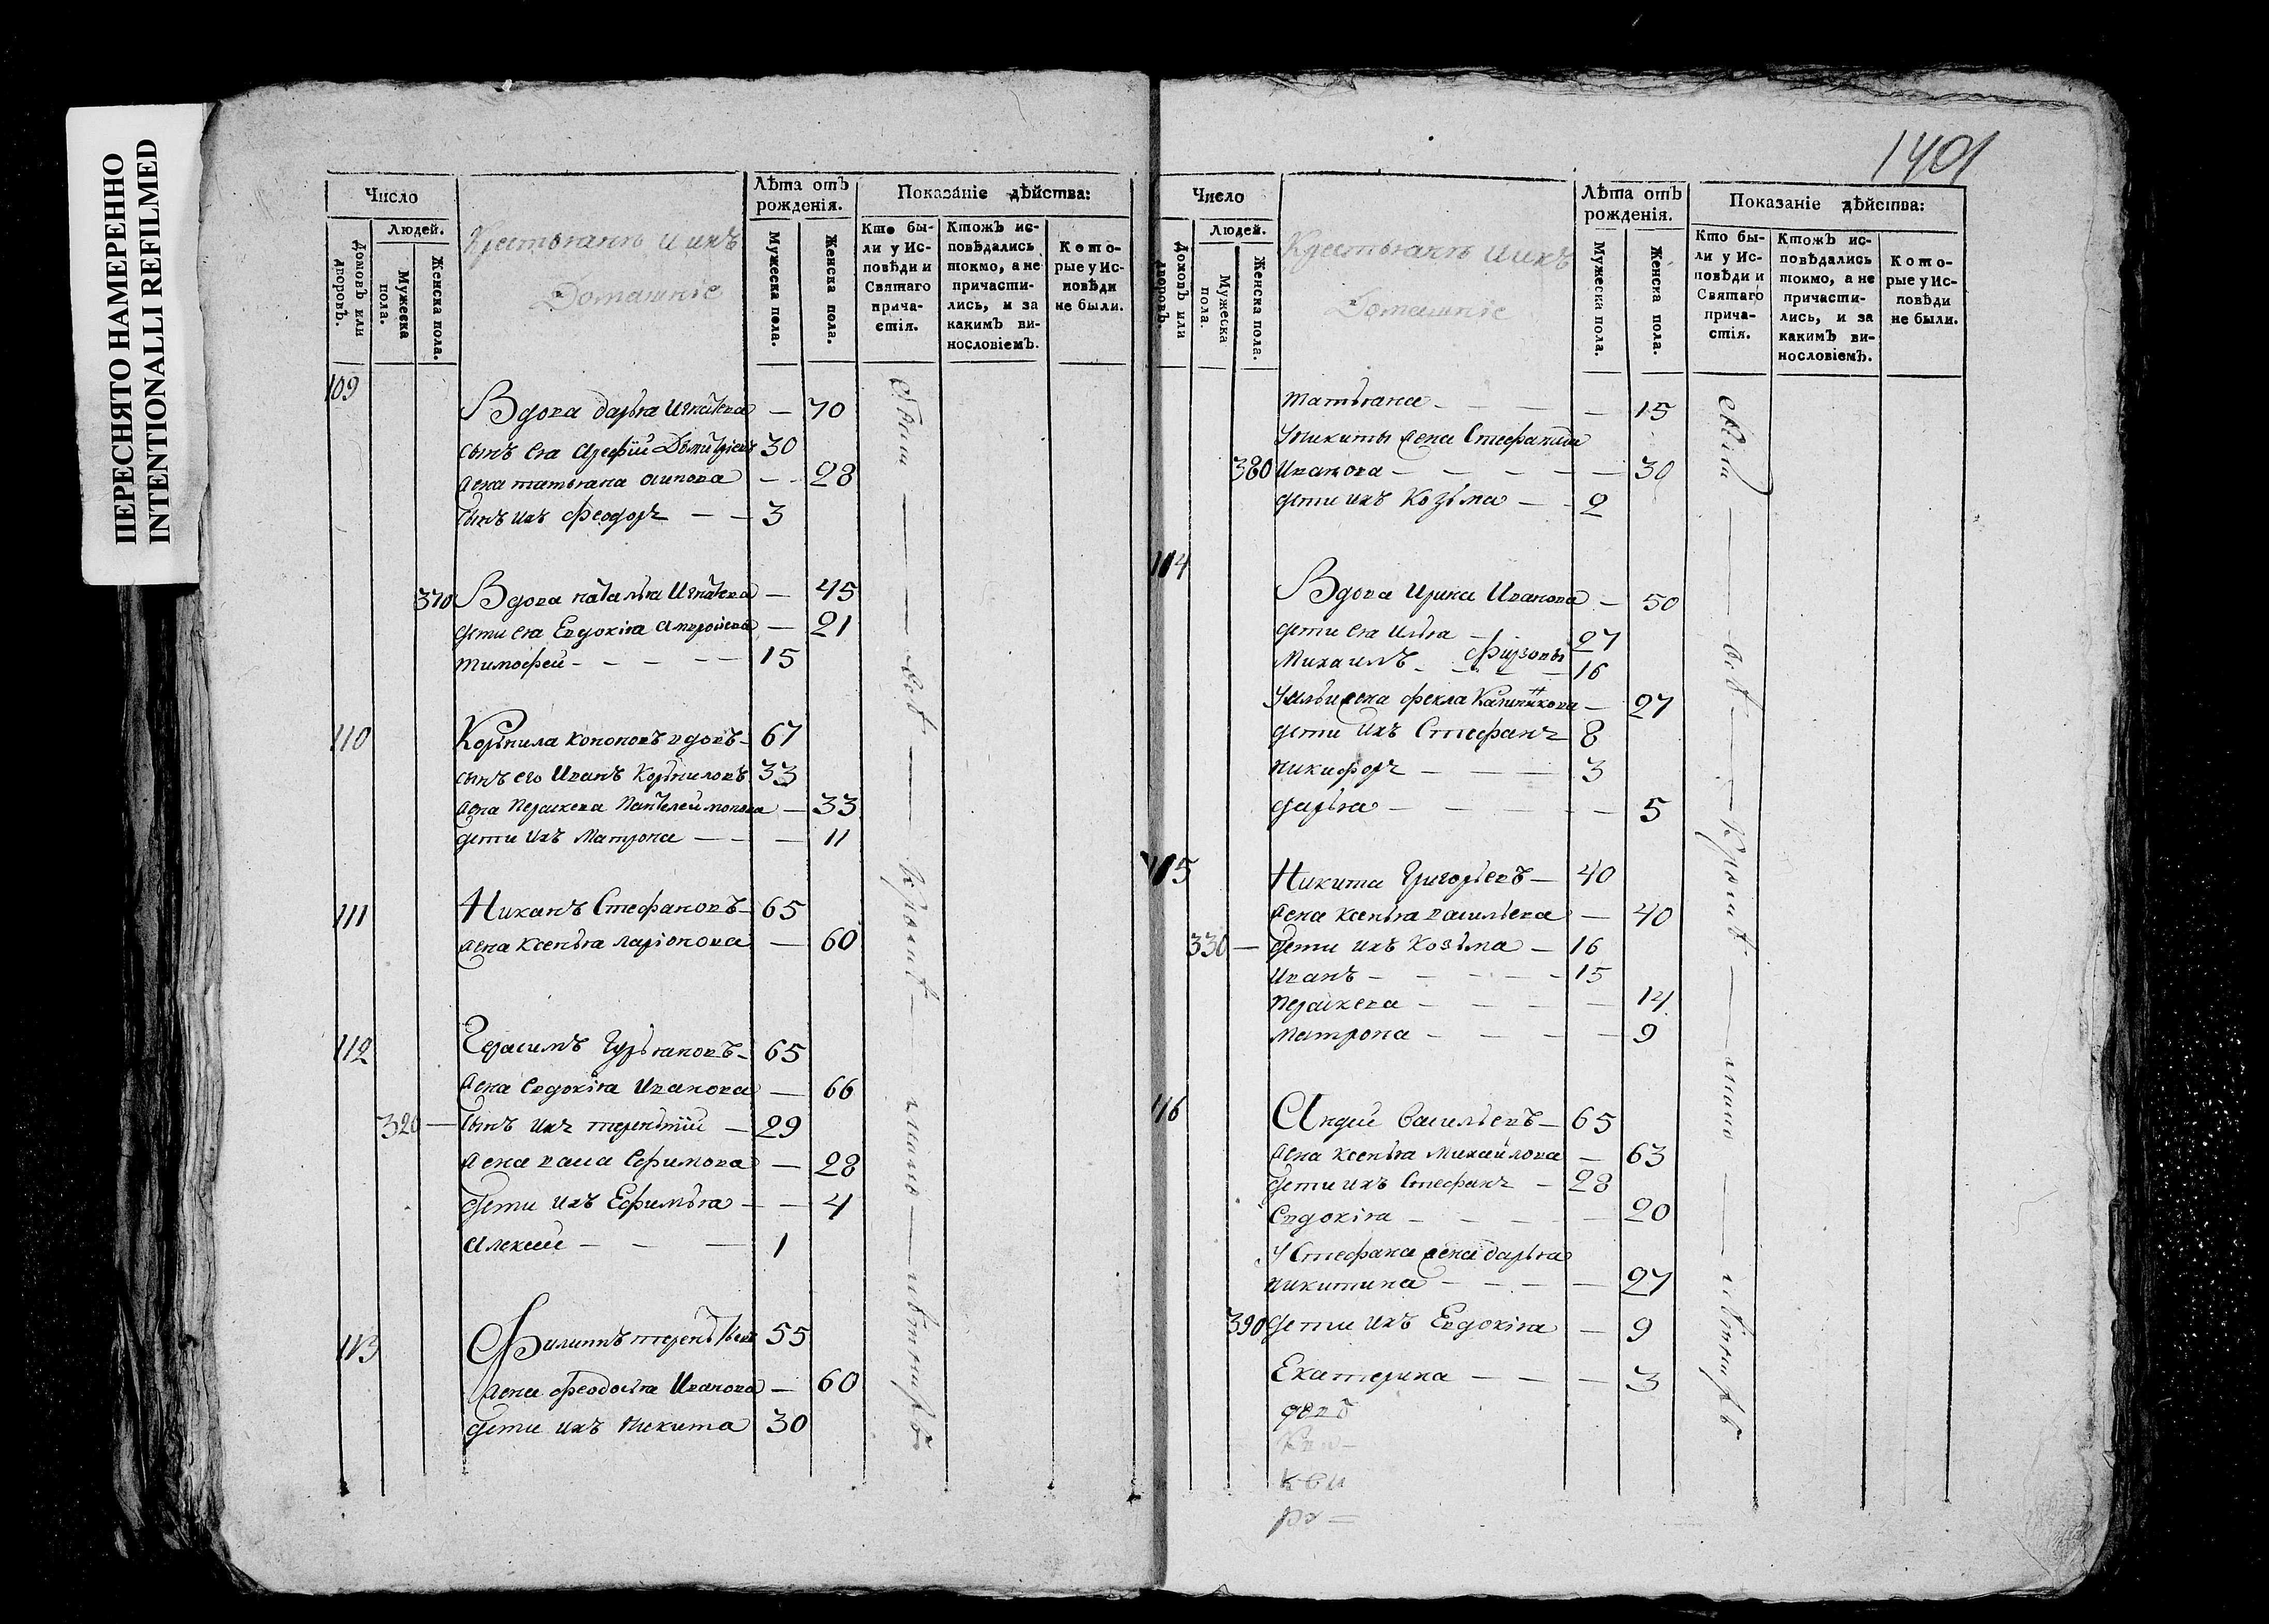 ПЕРЕСНЯТО НАМЕРЕННО
INTENTIONALLI REFILMED
Число
Людей.
Домовъ или дворовъ.
Мужеска пола.
Женска пола.
Крестьянъ и ихъ
Домашніе
Лѣта отъ рожденія.
Мужеска пола.
Женска пола.
Показаніе дѣйства:
Кто были у Исповѣди и Святаго причастія.
Ктожъ исповѣдались токмо, а не причастились, и за какимъ винословіемъ.
Которые у Исповѣди не были.
109
Вдова дарья Игнатева — 70
сынъ ея Арефій Дѣмитріевъ 30
жена татьяна Осипова — 28
сынъ ихъ феодоръ — — 3
370 Вдова наталья Игнатева — 45
дети ея Евдокія — 21
тимофей — — — 15
110 Корнила кононовъ вдовъ — 67
сынъ его Иванъ Корниловъ 33
жена Параскева Пантелеимонова — 33
дети ихъ Матрона — — 11
111 Никанъ Стефановъ — 65
жена Ксенья ларіонова — 60
112 Герасимъ Гурьяновъ — 65
жена евдокія Иванова — 66
320 — сынъ ихъ терентій — 29
жена васа Ефимова — 28
дети ихъ Ефимья — — 4
Алексей — — — 1
113 Филиппъ терентьевъ 55
жена феодосья Иванова — 60
дети ихъ никита 30
1401
Число
Людей.
Домовъ или дворовъ.
Мужеска пола.
Женска пола.
Крестьянъ и ихъ
Домашніе
Лѣта отъ рожденія.
Мужеска пола.
Женска пола.
Показаніе дѣйства:
Кто были у Исповѣди и Святаго причастія.
Ктожъ исповѣдались токмо, а не причастились, и за какимъ винословіемъ.
Которые у Исповѣди не были.
татьяна — — — — 15
У никиты жена Стефанида
380 Иванова — — — — 30
дети ихъ Козьма — — 2
114
Вдова Ирина Иванова — 50
дети ея Илья — 27
Михаилъ — Фирзовы 16
У ильи жена фекла Калинникова — 27
дети ихъ Стефанъ 8
никифоръ — — — 3
дарья — — — — 5
115 Никита Григорьевъ — 40
жена ксенья васильева — 40
330 — дети ихъ козьма — 16
иванъ — — — — 15
параскева — — — — 14
матрона — — — — 9
116 Андрей васильевъ — 65
жена ксенья михайлова — 63
дети ихъ Стефанъ — 28
Евдокія — — — — 20
У Стефана жена дарья
никитина — — — — 27
390 дети ихъ Евдокія — 9
Екатерина — — — 3